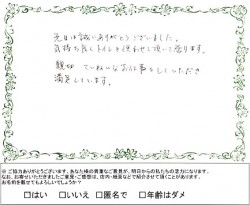 先日は誠にありがとうございました。
気持ち良くトイレを使わせて頂いて居ります。
親切 ていねいなお仕事をしていただき
満足しています。
※ご協力ありがとうございます。あなた様の貴重なご意見が、明日からの私たちの活力になります。
なお、お寄せいただきましたご意見・ご感想は、店内・紙面などで紹介させて頂くことがあります。
お名前を載せてもよろしいでしょうか?
□はい □いいえ □匿名で □年齢はダメ